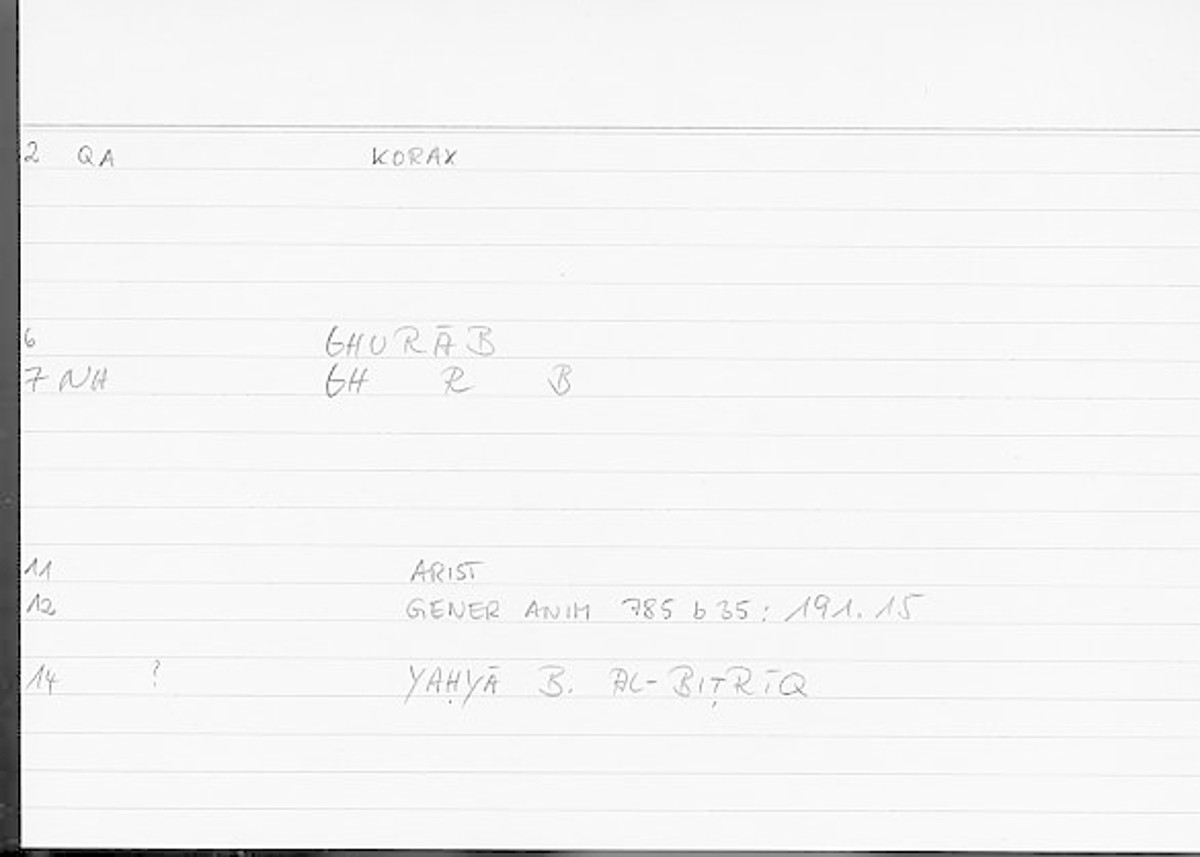 2 QA KORAX
6 GHURĀB
7 NH GH R B
11 ARIST
12 GENER ANIM 785 b 35 : 191.15
14 ? YAḤYĀ B. AL-BIṬRĪQ